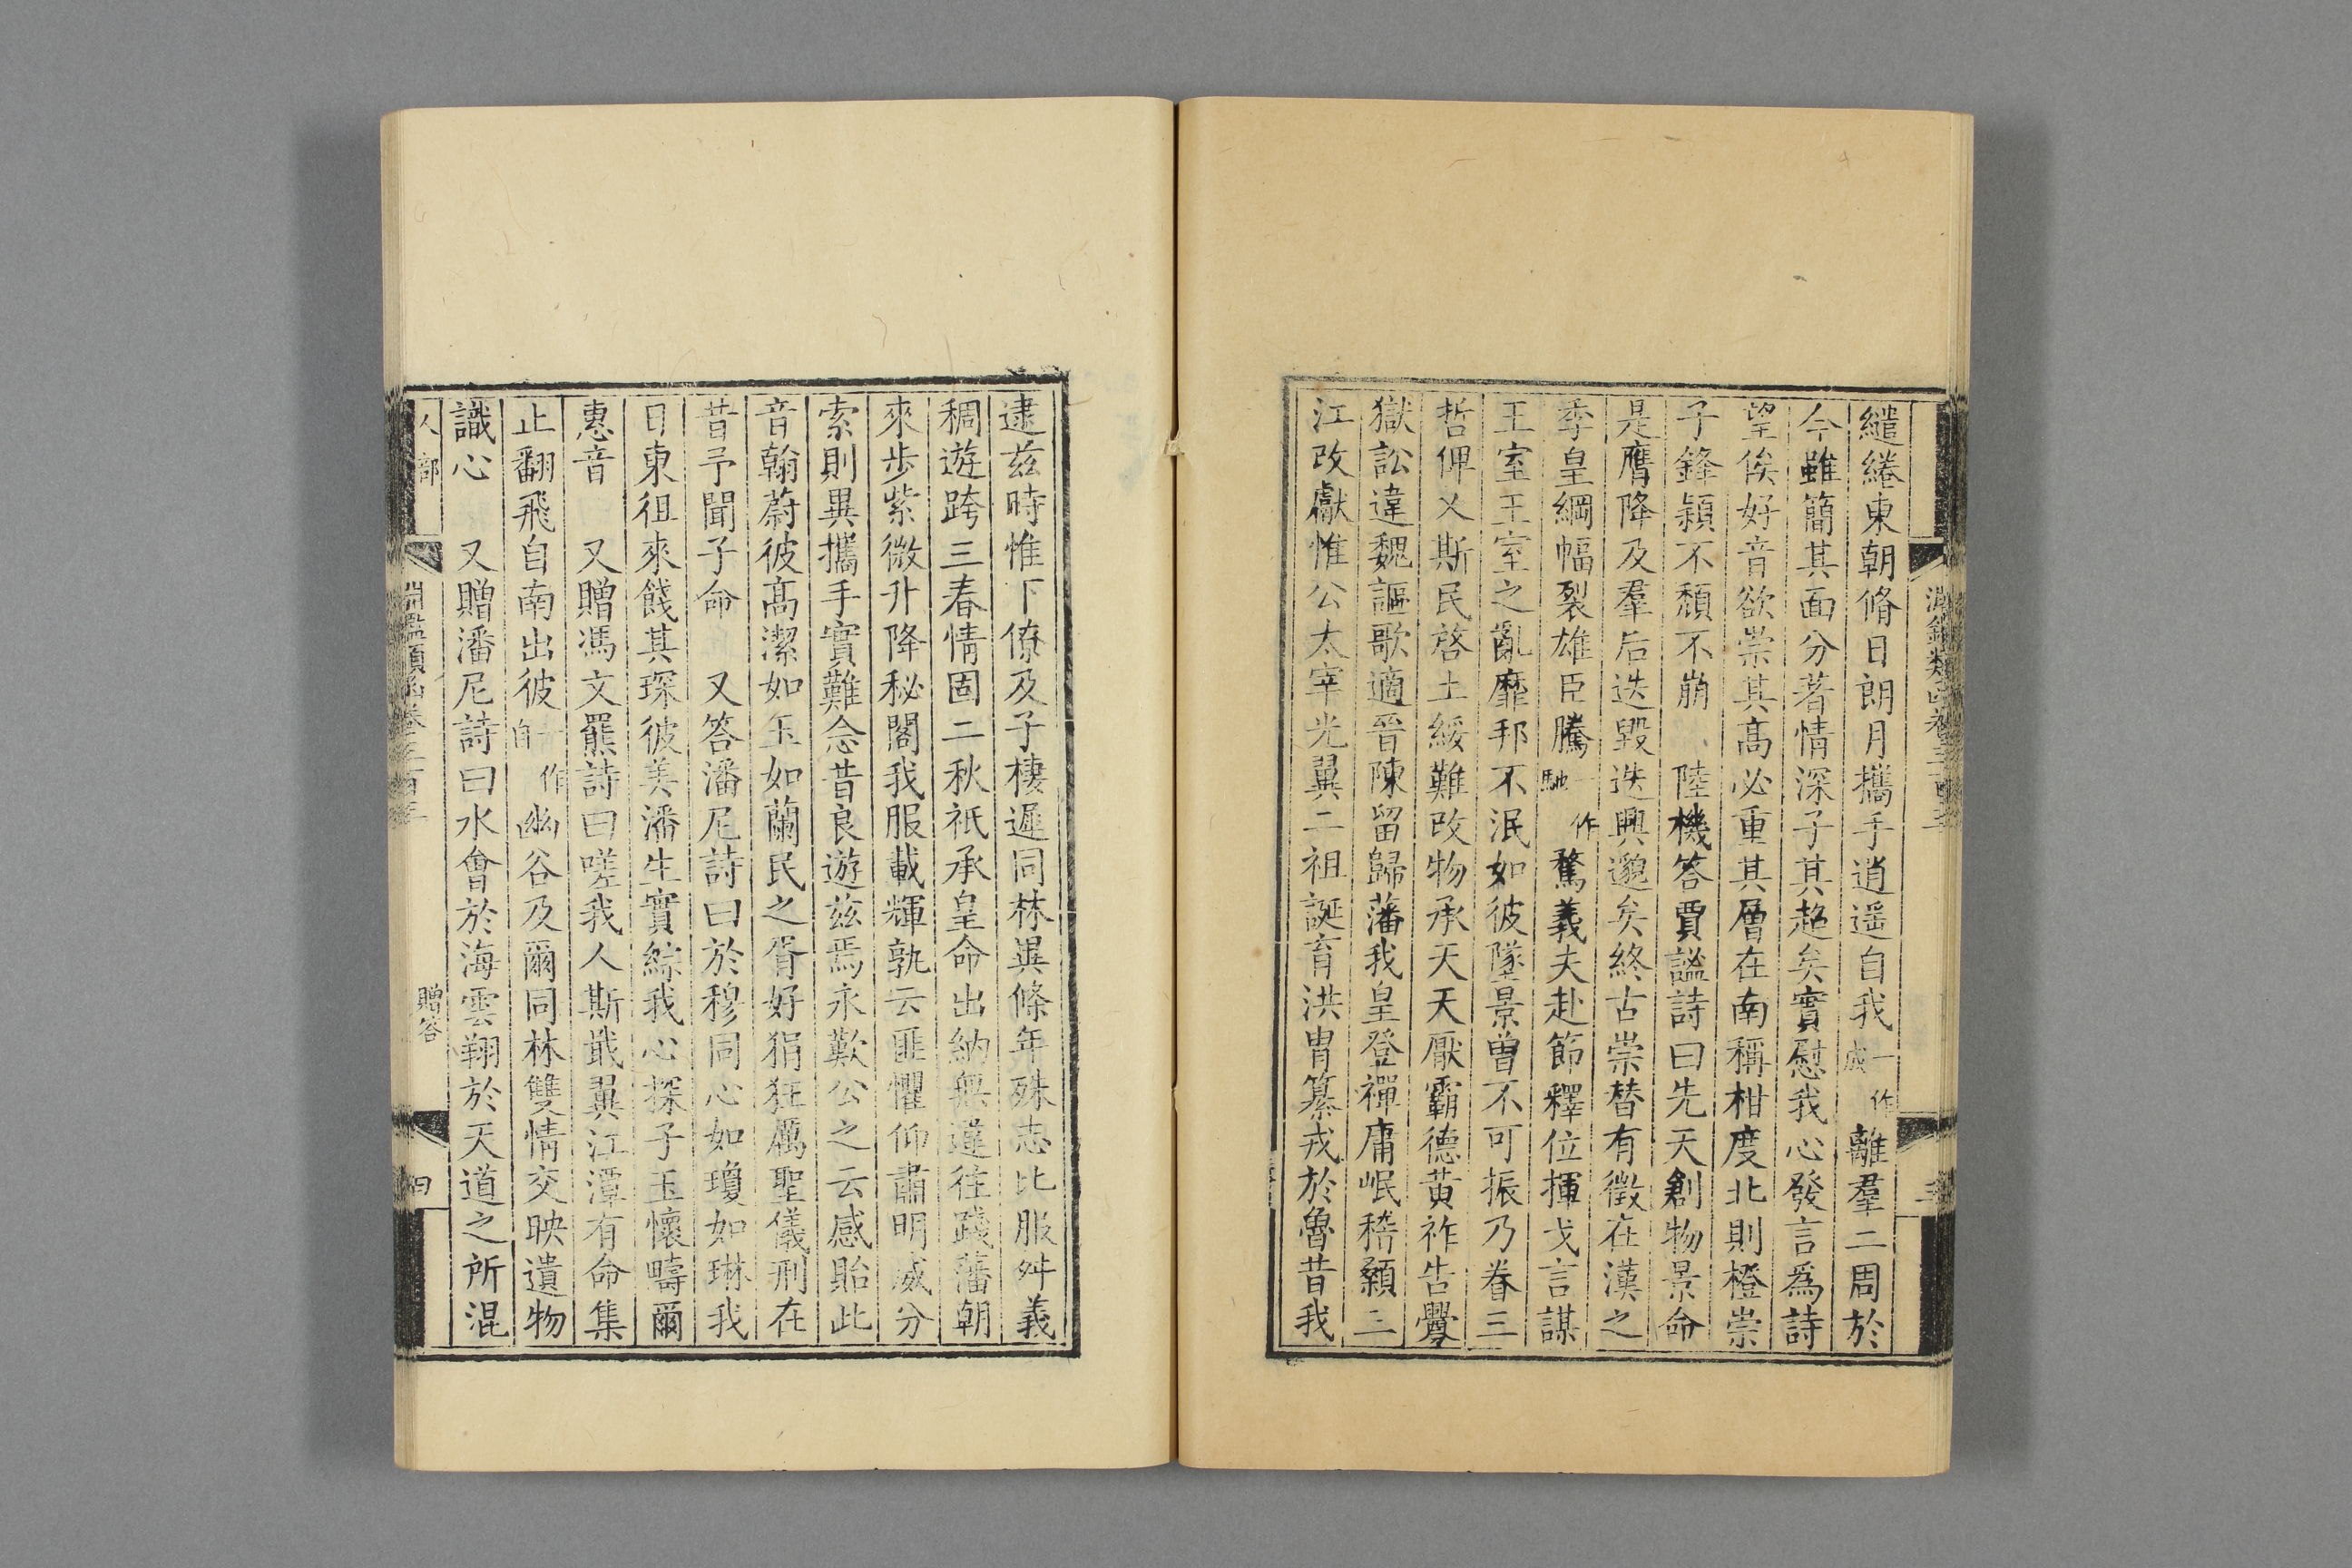 繾綣東朝脩日朗月攜手逍遥自我一作成離羣二周於
今雖簡其面分著情深子其超矣實慰我心發言爲詩
望俟好音欲崇其高必重其層在南稱柑度北則橙崇
子鋒潁不頹不崩　陸機答賈謐詩曰先天創物景命
是膺降及羣后迭毀迭興邈矣終古崇替有徵在漢之
季皇綱幅裂雄臣騰一作馳鶩義夫赴節釋位揮戈言謀
王室王室之亂靡邦不泯如彼墜景曾不可振乃眷三
哲俾乂斯民啓土綏難改物承天天厭霸德黄祚告釁
獄訟違魏謳歌適晉陳留歸藩我皇登禪庸岷稽顙三
江改獻惟公太宰光翼二祖誕育洪胄纂戎於魯昔我
逮兹時惟下僚及子棲遲同林異條年殊志比服舛義
稠遊跨三春情固二秋祇承皇命出納無違往踐藩朝
來步紫微升降秘閣我服載輝孰云匪懼仰肅明威分
索則異攜手實難念昔良遊兹焉永歎公之云感貽此
音翰蔚彼高潔如玉如蘭民之胥好狷狂厲聖儀刑在
昔予聞子命　又答潘尼詩曰於穆同心如瓊如琳我
日東徂來餞其琛彼美潘生實綜我心探子玉懷疇爾
惠音　又贈馮文羆詩曰嗟我人斯戢翼江潭有命集
止翻飛自南出彼一作自幽谷及爾同林雙情交映遺物
識心　又贈潘尼詩曰水會於海雲翔於天道之所混
人部
贈答